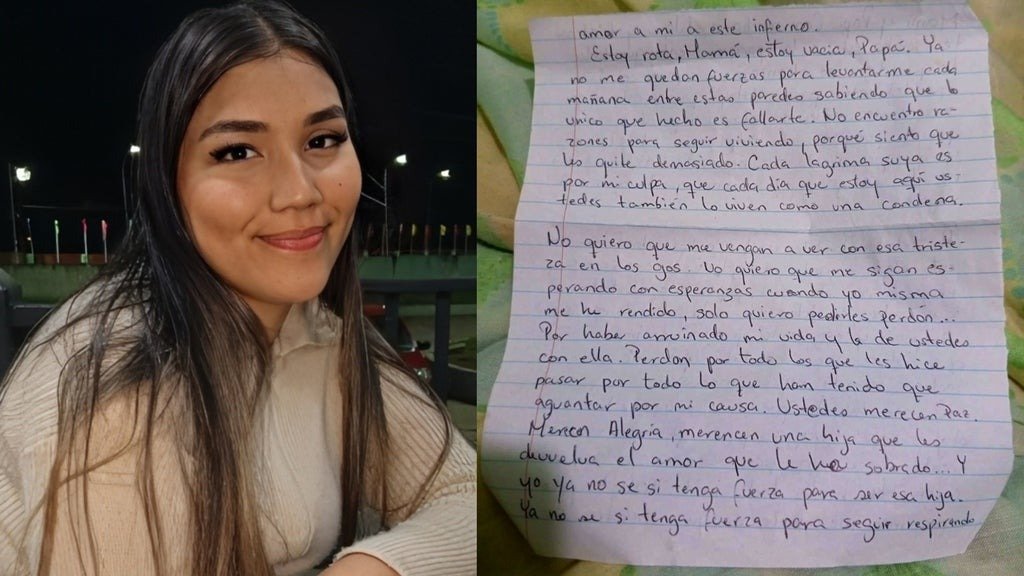 amor a mi a este infierno.
Estoy rota, Mamá, estoy vacia, Papá. Ya
no me quedan fuerzas para levantarme cada
mañana entre estas paredes sabiendo que lo
unico que hecho es fallarte. No encuentro ra-
zones para seguir viviendo, porqué siento que
les quite demasiado. Cada lagrima suya es
por mi culpa, que cada dia que estoy aqui us-
tedes también lo viven como una condena.
No quiero que me vengan a ver con esa triste-
za en los ojos. No quiero que me sigan es-
perando con esperanzas cuando yo misma
me he rendido, solo quiero pedirles perdón...
Por haber arruinado mi vida y la de ustedes
con ella. Perdon, por todo los que les hice
pasar por todo lo que han tenido que
aguantar por mi causa. Ustedes merecen Paz.
Merecen Alegria, merencen una hija que les
devuelva el amor que le ha sobrado... Y
yo ya no se si tenga fuerza para ser esa hija.
Ya no se si tenga fuerza para seguir respirando